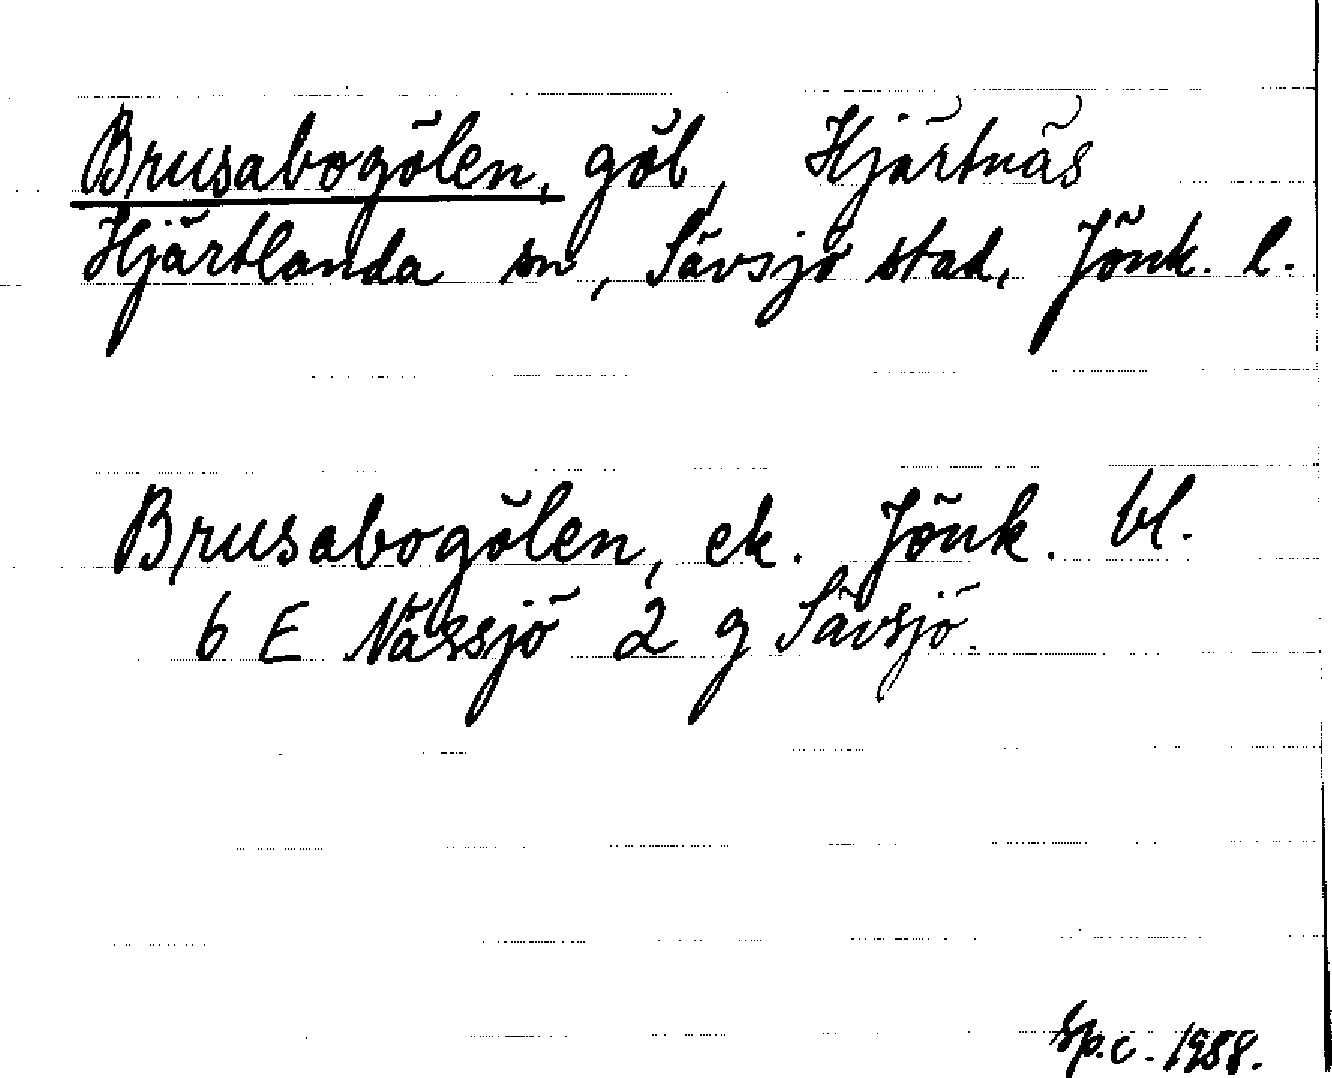 Brusabogölen, göl, Hjärtnäs
Hjärtlanda sn, Sävsjö stad, Jönk. l.
Brusabogölen, ek. Jönk. bl.
6 E Nässjö 2 g Sävsjö.
Sp.c. 1958.